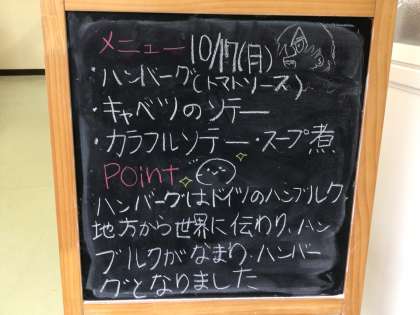 メニュー 10/17(月)
・ハンバーグ(トマトソース)
・キャベツのソテー
・カラフルソテー・スープ煮
Point
ハンバーグはドイツのハンブルク
地方から世界に伝わり、ハン
ブルクがなまり、ハンバー
グとなりました